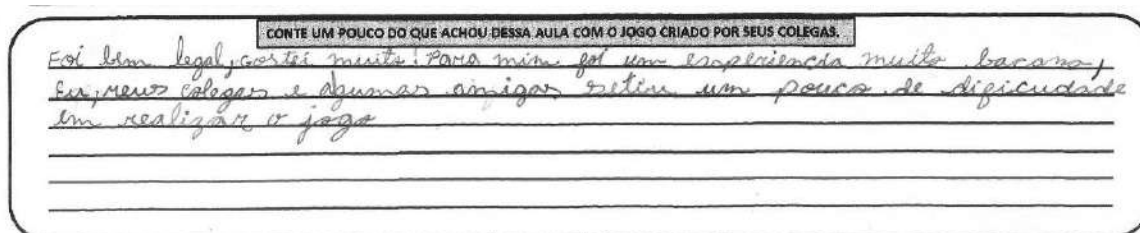 CONTE UM POUCO DO QUE ACHOU DESSA AULA COM O JOGO CRIADO POR SEUS COLEGAS.
Foi bem legal, gostei muito! Para mim foi um experiencia muito bacana,
Eu, meus colegas e algumas amigas um pouco de dificudade
em realizar o jogo